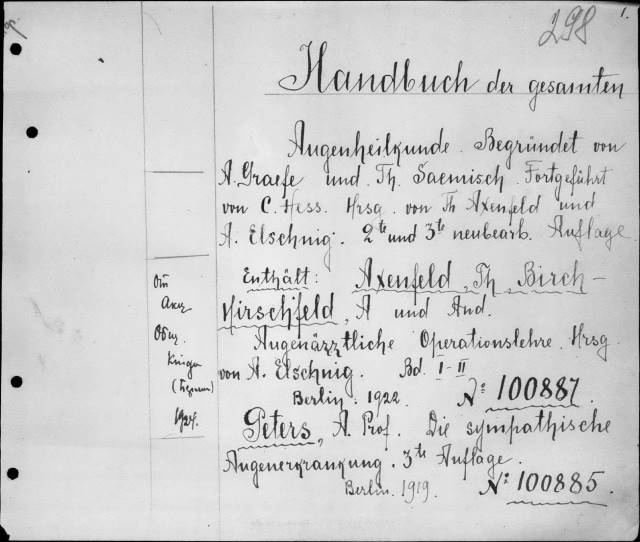 298
1.
Handbuch der gesamten
Augenheilkunde. Begründet von
A. Graefe und Th. Saemisch. Fortgeführt
von C. Hess. Hrsg. von Th Axenfeld und
A. Elschnig. 2te und 3te neubearb. Auflage
Enthält: Axenfeld, Th, Birch-
Hirschfeld, A und And.
Augenäzztliche Operationslehre. Hrsg
von A. Elschnig. Bd. I-II
Berlin. 1922. № 100887.
Peters, A. Prof. Die sympathische
Augenerkrankung. 3te Auflage.
Berlin. 1919. № 100885.
1924.